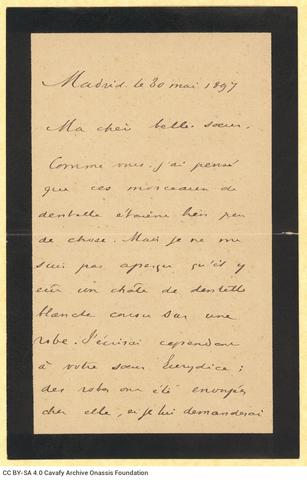 Madrid. le 30 mai 1897
Ma chère belle-sœur,
Comme vous. j'ai pensé
que ces morceaux de
dentelle étaient bien peu
de chose. Mais je ne me
suis pas aperçu qu'il y
eut un châle de dentelle
blanche cousu sur une
robe. J'écrirai cependant
à votre sœur Eurydice ;
des robes ont été envoyées
chez elle, et je lui demanderai
CC BY-SA 4.0 Cavafy Archive Onassis Foundation